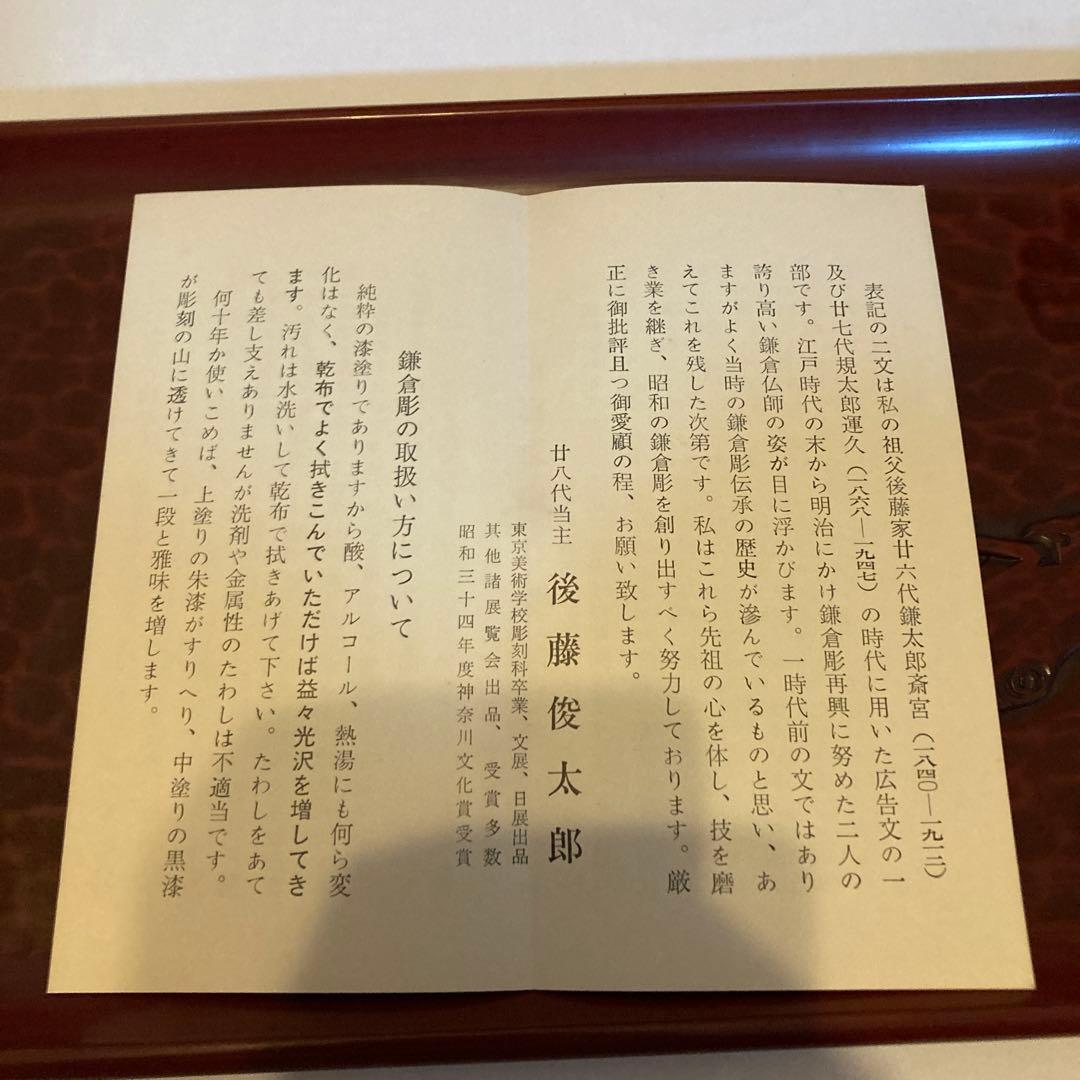 表記の二文は私の祖父後藤家廿六代鎌太郎斎宮（一八四〇―一九一二）
及び廿七代規太郎運久（一八六八―一九四七）の時代に用いた広告文の一
部です。江戸時代の末から明治にかけ鎌倉彫再興に努めた二人の
誇り高い鎌倉仏師の姿が目に浮かびます。一時代前の文ではあり
ますがよく当時の鎌倉彫伝承の歴史が滲んでいるものと思い、あ
えてこれを残した次第です。私はこれら先祖の心を体し、技を磨
き業を継ぎ、昭和の鎌倉彫を創り出すべく努力しております。厳
正に御批評且つ御愛顧の程、お願い致します。
廿八代当主　後藤俊太郎
東京美術学校彫刻科卒業、文展、日展出品
其他諸展覧会出品、受賞多数
昭和三十四年度神奈川文化賞受賞
鎌倉彫の取扱い方について
純粋の漆塗りでありますから酸、アルコール、熱湯にも何ら変
化はなく、乾布でよく拭きこんでいただけば益々光沢を増してき
ます。汚れは水洗いして乾布で拭きあげて下さい。たわしをあて
ても差し支えありませんが洗剤や金属性のたわしは不適当です。
何十年か使いこめば、上塗りの朱漆がすりへり、中塗りの黒漆
が彫刻の山に透けてきて一段と雅味を増します。